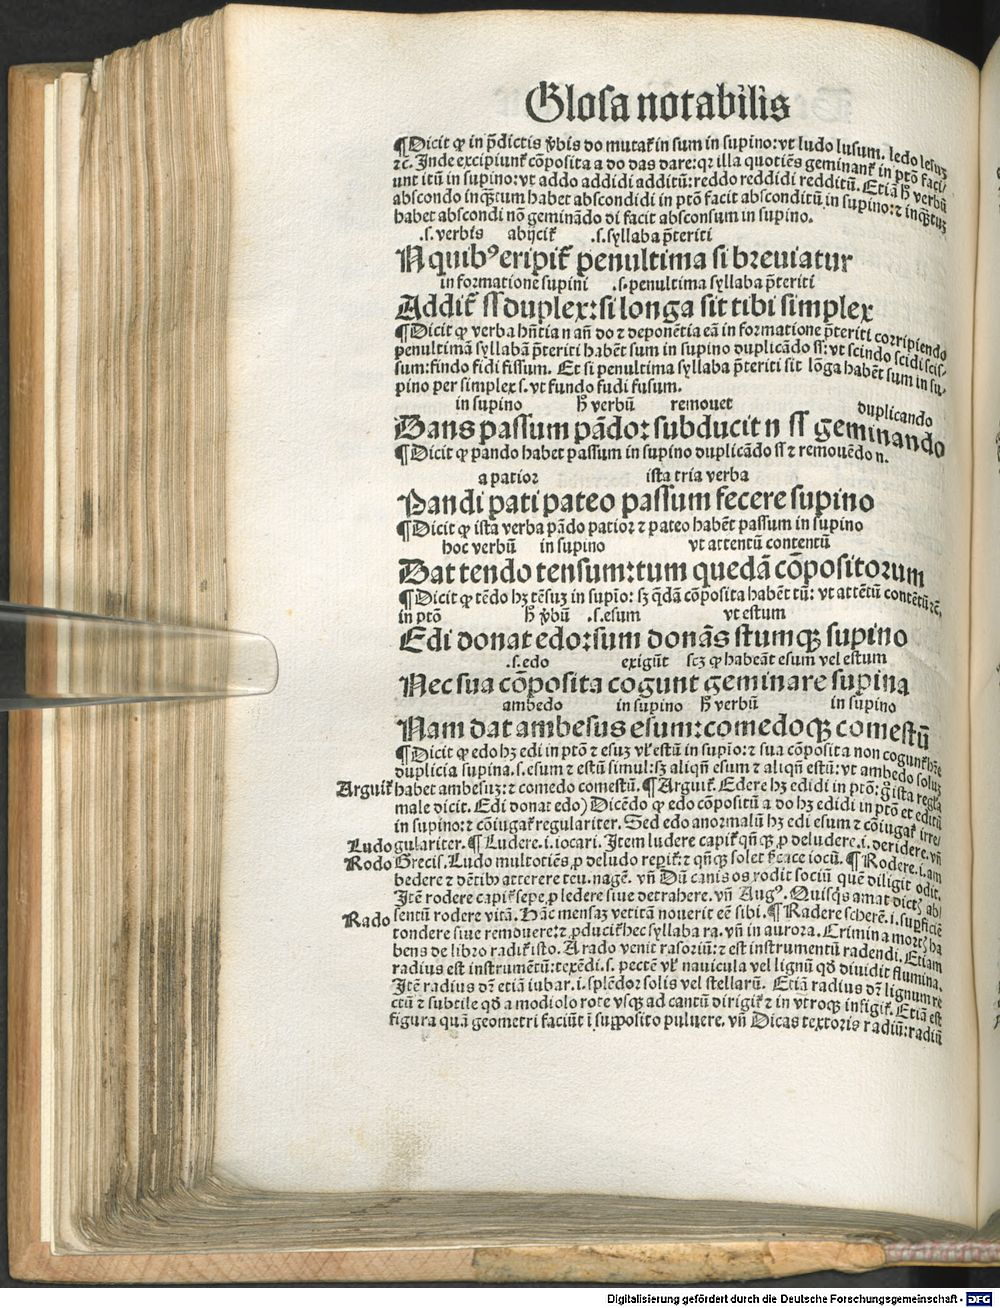 Glosa notabilis
¶Dicit ꝙ in p̄dictis v̄bis do mutat᷑ in sum in supino: vt ludo lusum. ledo lesuꝫ
ꝛc̄. Inde excipiunt᷑ cōposita a do das dare: qꝛ illa quotiēs geminant᷑ in ptō faci/
unt itū in supino: vt addo addidi additū: reddo reddidi redditū. Etiā hͦ verbū
abscondo inqͣꝫtum habet abscondidi in ptō facit absconditū in supino: ⁊ inqͣꝫtuꝫ
habet abscondi nō geminādo di facit absconsum in supino.
.s. verbis abijcit᷑ .s. syllaba p̄teriti
N quibꝰ eripit᷑ penultima si breuiatur
in formatione supini .s. penultima syllaba p̄teriti
Addit᷑ ss duplex: si longa sit tibi simplex
¶Dicit ꝙ verba hn̄tia n an̄ do ⁊ deponētia eā in formatione p̄teriti corripiendo
penultimā syllabā p̄teriti habēt sum in supino duplicādo ss: vt scindo scidi scis-
sum: findo fidi fissum. Et si penultima syllaba p̄teriti sit lōga habēt sum in su/
pino per simplex s. vt fundo fudi fusum.
in supino hͦ verbū remouet duplicando
Dans passum pādo: subducit n ss geminando
¶Dicit ꝙ pando habet passum in supino duplicādo ss ⁊ remouēdo n.
a patior ista tria verba
Pandi pati pateo passum fecere supino
¶Dicit ꝙ ista verba pādo patior ⁊ pateo habēt passum in supino
hoc verbū in supino vt attentū contentū
Dat tendo tensum: tum quedā cōpositorum
¶Dicit ꝙ tēdo hꝫ tēsuꝫ in supīo: sꝫ qͣdā cōposita habēt tū: vt attētū contētū ꝛc̄.
in ptō hͦ v̄bū .s. esum vt estum
Edi donat edo: sum donās stumqꝫ supino
.s. edo exigūt scꝫ ꝙ habeāt esum vel estum
Nec sua cōposita cogunt geminare supina
ambedo in supino hͦ verbū in supino
Nam dat ambesus esum: comedoqꝫ comestū
¶Dicit ꝙ edo hꝫ edi in ptō ⁊ esuꝫ vl᷑ estū in supīo: ⁊ sua cōposita non cogunt᷑ hr̄e
duplicia supina. s. esum ⁊ estū simul: sꝫ aliqn̄ esum ⁊ aliqn̄ estū: vt ambedo soluꝫ
Arguit᷑ habet ambesuꝫ: ⁊ comedo comestū. ¶Arguit᷑. Edere hꝫ edidi in ptō: gͦ ista regl̄a
male dicit. Edi donat edo) Dicēdo ꝙ edo cōpositū a do hꝫ edidi in ptō et editū
in supino: ⁊ cōiugat᷑ regulariter. Sed edo anormalū hꝫ edi esum ⁊ cōiugat᷑ irre/
Ludo gulariter. ¶Ludere. i. iocari. Item ludere capit᷑ qn̄qꝫ ꝓ deludere. i. deridere. vn̄
Rodo Grecis. Ludo multotiēs ꝓ deludo reꝑit᷑: ⁊ qn̄qꝫ solet cace iocū. ¶Rodere. i. am
bedere ⁊ dētibꝫ atterere teu. nagē. vn̄ Dū canis os rodit sociū quē diligit odit.
Itē rodere capit᷑ sepe ꝓ ledere siue detrahere. vn̄ Augꝰ. Quisqͥs amat dictꝫ ab/
Rado sentū rodere vitā. Hāc mensaꝫ vetitā nouerit eē sibi. ¶Radere scherē. i. suꝑficiē
tondere siue remouere: ⁊ ꝓducit᷑ hec syllaba ra. vn̄ in aurora. Crimina mortꝫ ha
bens de libro radit᷑ isto. A rado venit rasoriū: ⁊ est instrumentū radendi. Etiam
radius est instrumētū: texēdi. s. pectē vl᷑ nauicula vel lignū qd̄ diuidit flumina.
Itē radius dꝫ etiā iubar. i. splēdor solis vel stellarū. Etiā radius dꝫ lignum re
ctū ⁊ subtile qd̄ a modiolo rote vsqꝫ ad cantū dirigit᷑ ⁊ in vtroqꝫ infigit᷑. Etiā est
figura quā geometri faciūt ī suꝓposito puluere. vn̄ Dicas textoris radiū: radiū
Digitalisierung gefördert durch die Deutsche Forschungsgemeinschaft - DFG